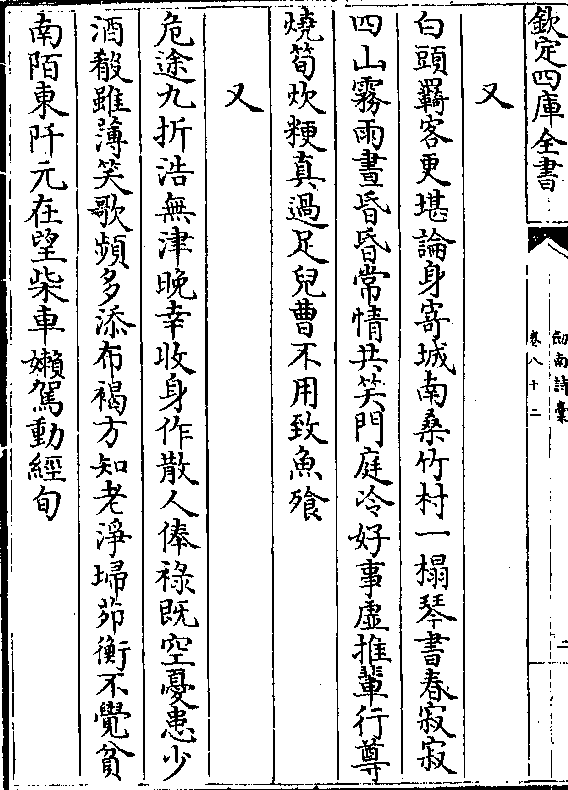 欽定四庫全書
劒南詩稾
卷八十二
二
又
白頭羇客更堪論身寄城南桑竹村一榻琴書春寂寂
四山霧雨晝昏昏常情共笑門庭冷好事虛推輩行尊
燒筍炊粳真過足兒曹不用致魚飱
又
危途九折浩無津晚幸收身作散人俸祿既空憂患少
酒殽雖薄笑歌頻多添布褐方知老淨埽茆衡不覺貧
南陌東阡元在望柴車嬾駕動經旬